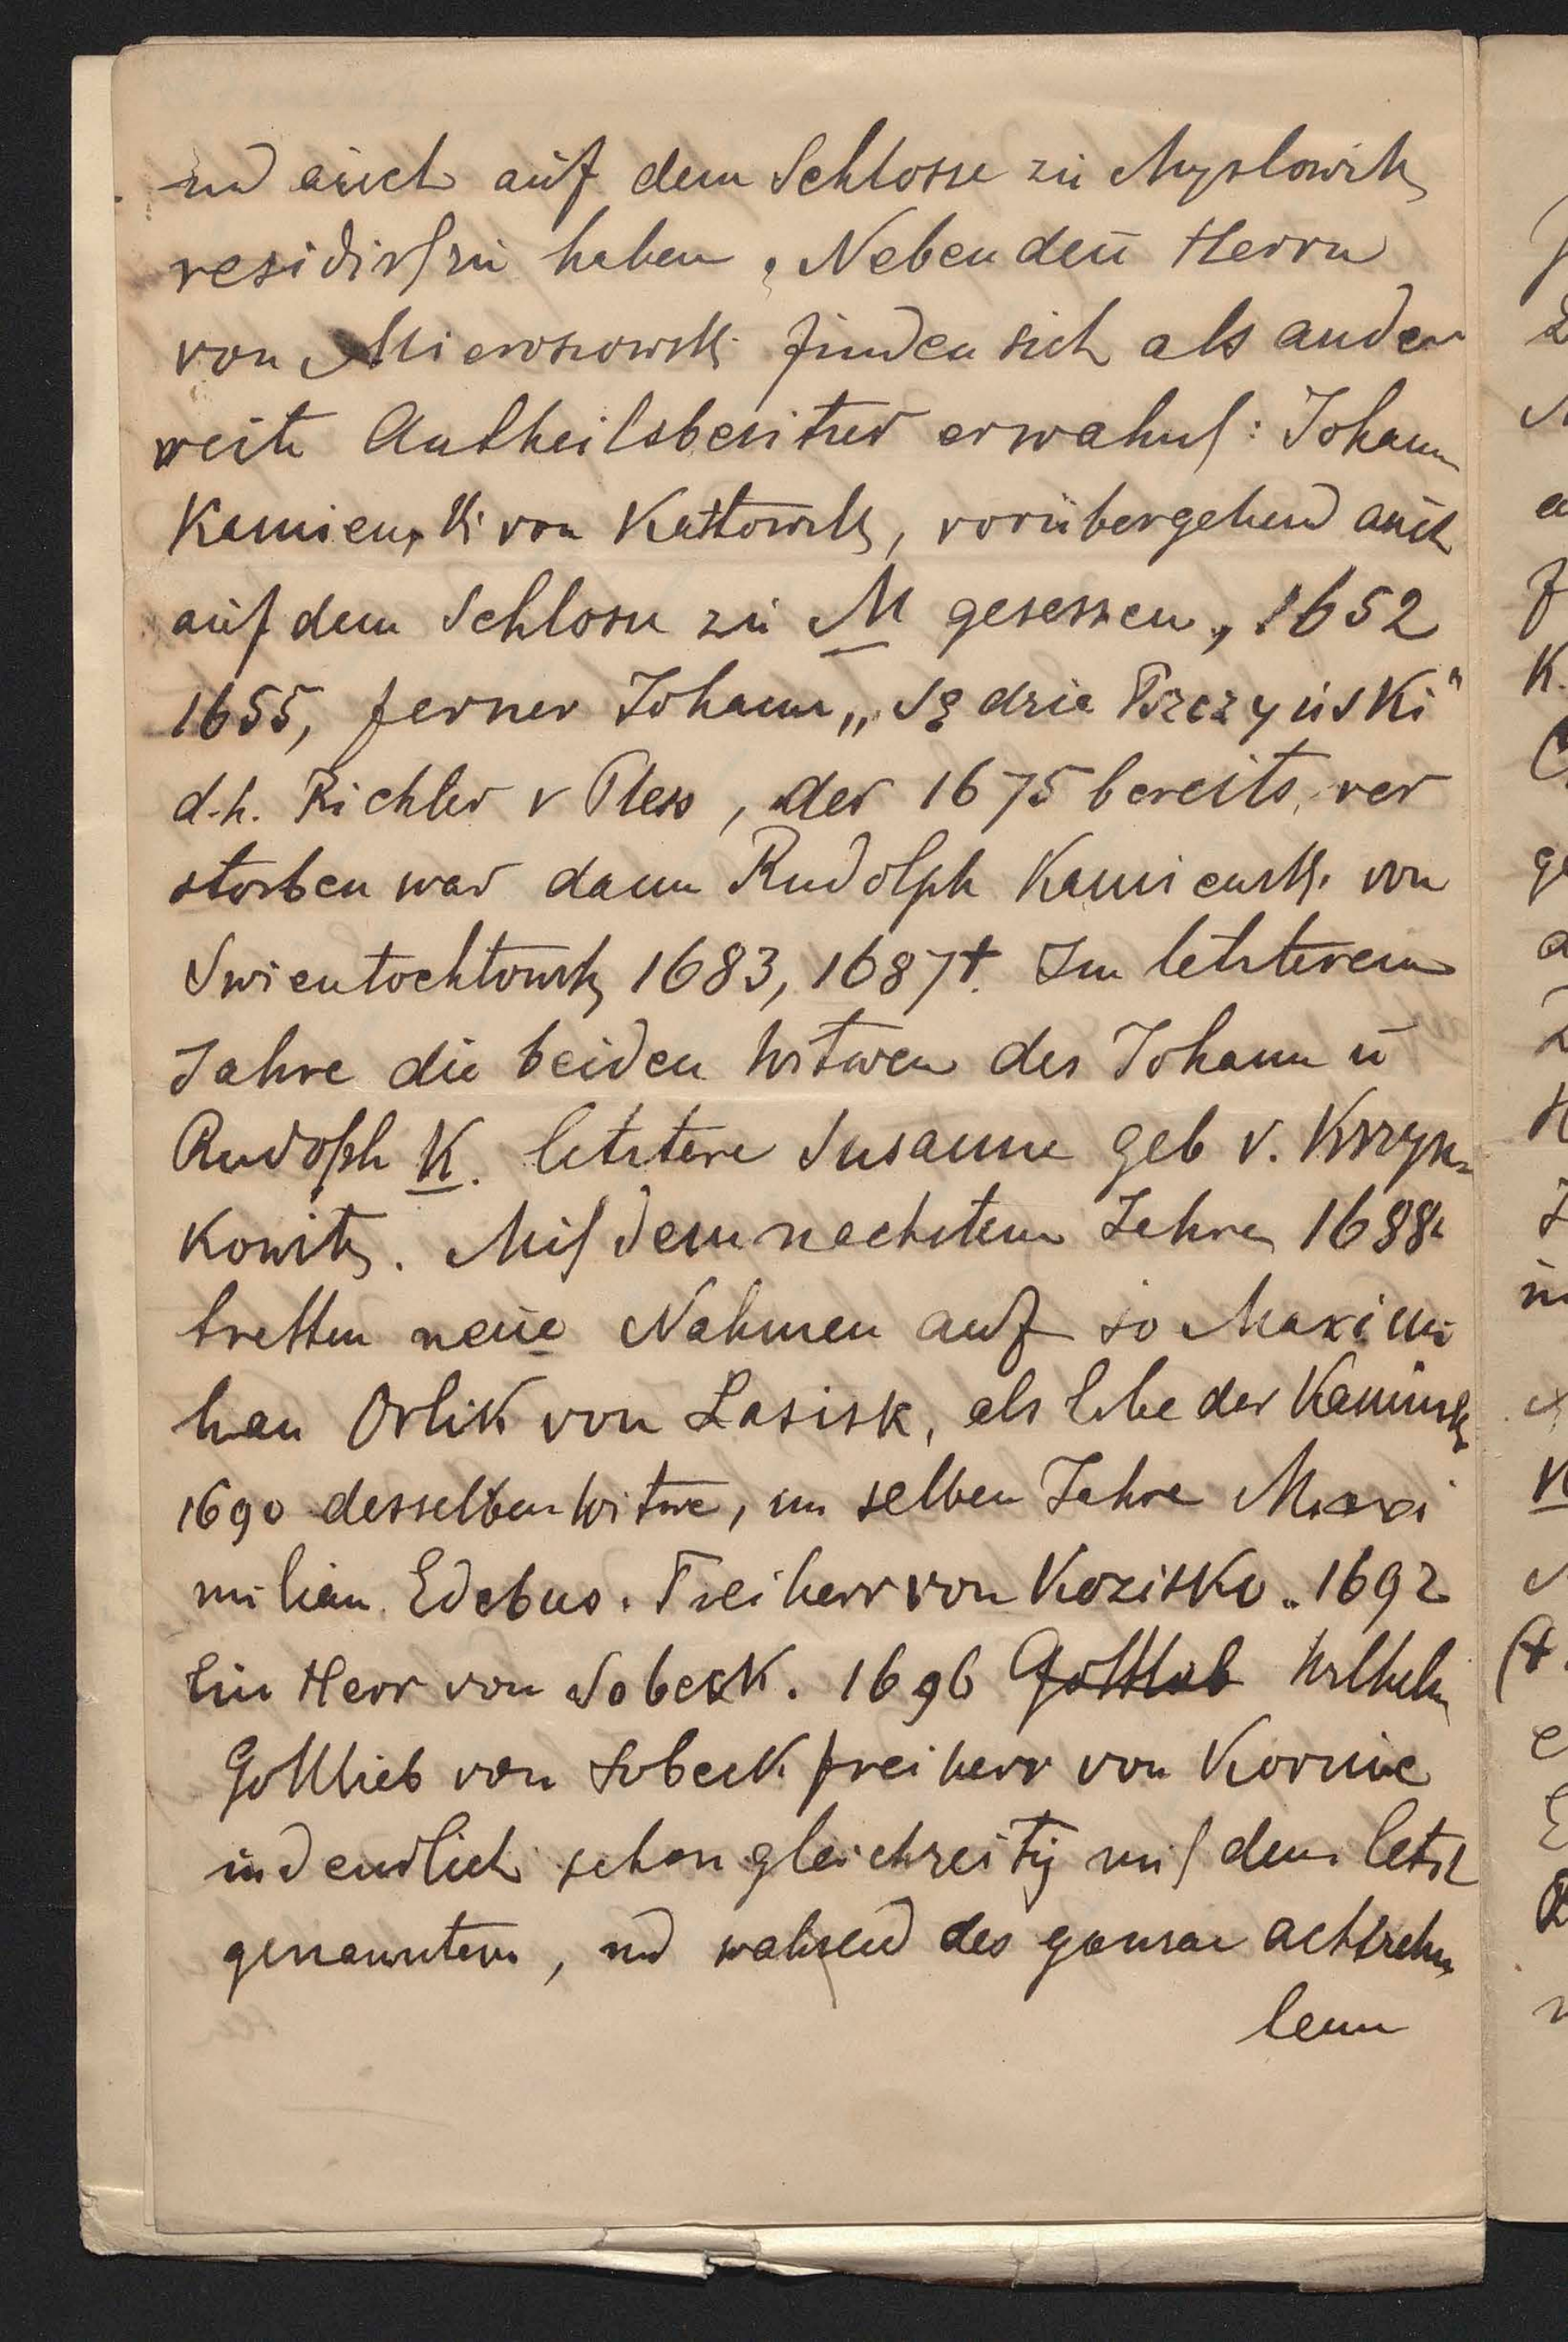 und auch auf dem Schlosse zu Myslowitz
residirt zu haben. Neben den Herrn
von Mieroszowski finden sich als ander
weite Antheilsbesitzer erwahnt: Johann
Kamienski von Kattowitz, vorübergehend auch
auf dem Schlosse zu M gesessen, 1652
1655, ferner Johann „Sędzia Pszczyński"
d.h. Richter v Pless, der 1675 bereits ver
storben war dann Rudolph Kamienski von
Swientochlowitz 1683, 1687 †. Im letzterem
Jahre die beiden Witwen des Johann ū
Rudolph K. letztere Susanne geb v. Krzyz=
kowitz. Mit dem nachstem Jahre 1688
tretten neue Nahmen auf so Maximi
lian Orlik von Lasisk, als Erbe der Kaminsk
1690 desselben Witwe, im selben Jahre Maxi
milian Freiherr von Kozisko. 1692
Ein Herr von Sobeck. 1696 Gottlieb Wilhelm
Gottlieb von Sobeck freiherr von Kornic
und endlich schon gleichzeitig mit dem letzt
genanntem, und wahrend des ganzen achtzehn